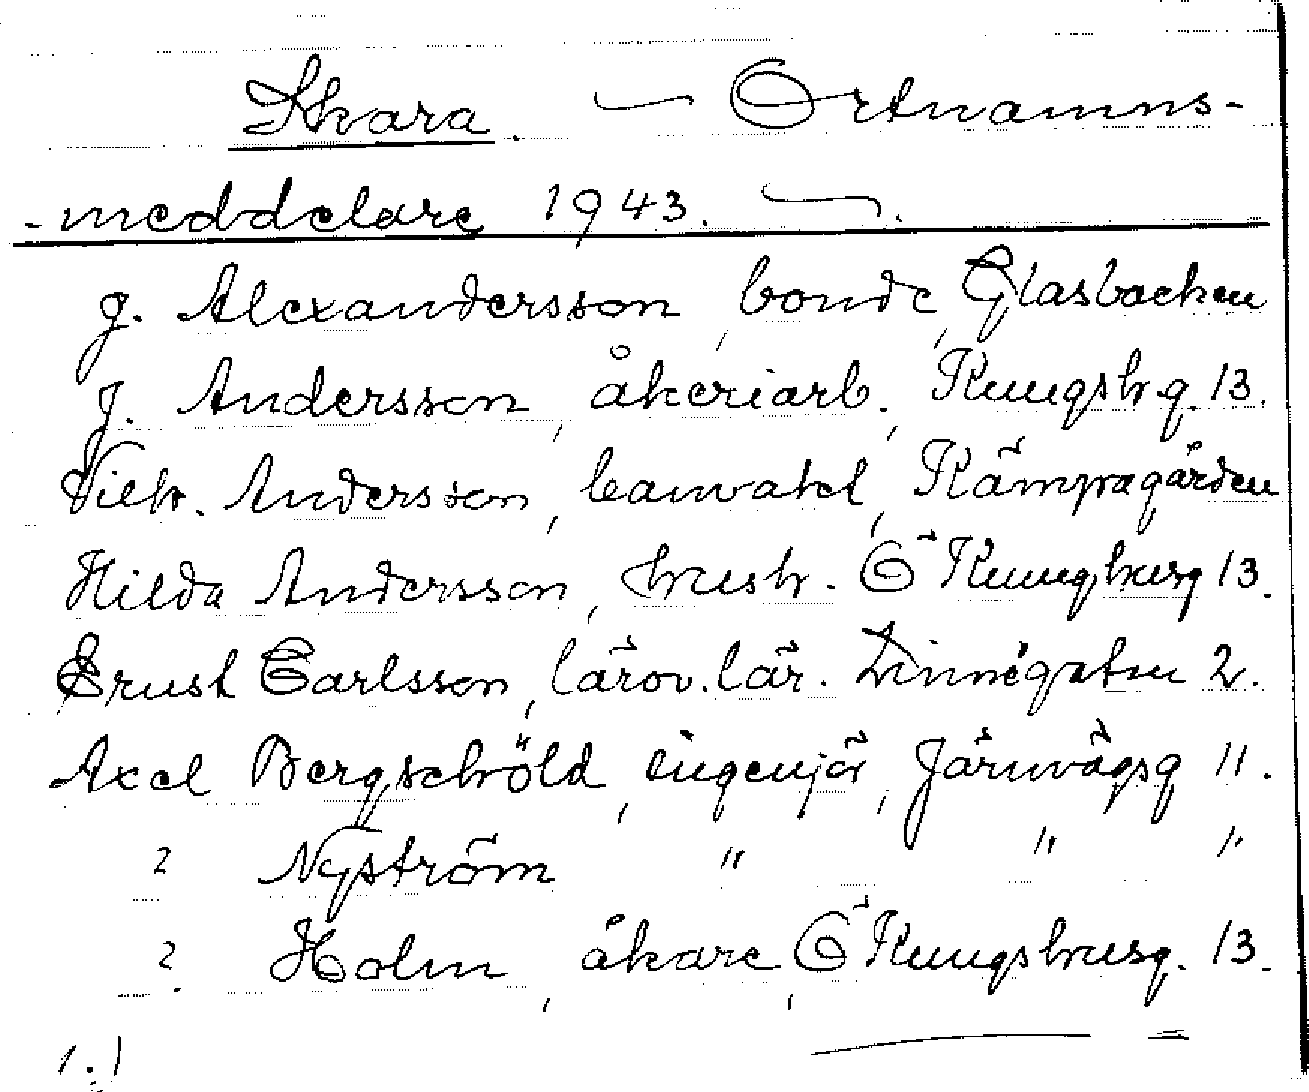 Skara. — Ortnamns-
-meddelare 1943. —.
J. Alexandersson, bonde, Glasbacken
J. Andersson, åkeriarb., Kungsh.g. 13.
Vilh. Andersson, banvakt, Kämpagården
Hilda Andersson, hustr. Ö Kungshusg 13.
Ernst Carlsson, lärov.lär. Linnégatan 2.
Axel Bergschöld, ingenjör, Järnvägsg 11.
? Nyström " " "
? Holm, åkare, Ö Kungshusg. 13.
1.)